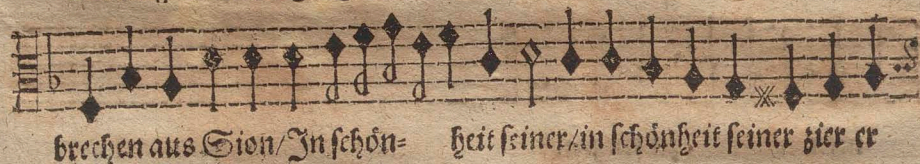 brechen aus Sion/In ſchön= heit ſeiner/in ſchönheit ſeiner zier er